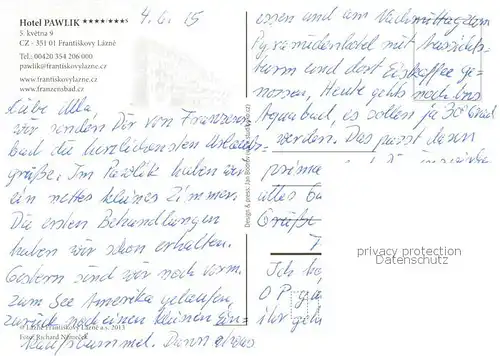 Hotel PAWLIK ****/****S
5. května 9
CZ - 351 01 Františkovy Lázně
Tel: 00420 354 206 000
pawlik@frantiskovylazne.cz
www.frantiskovylazne.cz
www.franzensbad.cz
4. 6. 15
Liebe Ulla
wir senden Dir von Franzens-
bad die herzlichsten Urlaubs-
grüße. Im Pawlik haben wir
ein nettes kleines Zimmer.
Die ersten Behandlungen
haben wir schon erhalten.
Gestern sind wir noch vorm.
zum See Amerika gelaufen,
zurück noch einen kleinen Ein-
kaufsbummel. Dann etwas
© Lázně Františkovy Lázně a.s. 2013
Foto: Richard Němeček
essen und am Nachmittag dem
Pyramidenhotel mit Aussichts-
turm und dort Eiskaffee ge-
nossen. Heute gehts noch ins
Aquabad, es sollen ja 30° Grad
werden. Das passt dann
prima
alles Gu
Grüße
Ich ho
O P
ihr geht
Design & press: Jan
privacy protection
DATENSCHUTZ